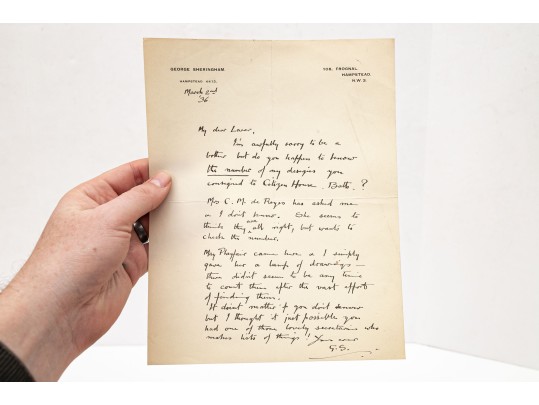 GEORGE SHERINGHAM.
HAMPSTEAD
108, FROGNAL,
HAMPSTEAD,
N.W.3.
March 2nd
'36
My dear
I'm awfully sorry to be a
bother but do you happen to know
the number of my designs you
consigned to Citizen House, Bath.?
Mrs C. M. de Reyes has asked me
& I don't know. She seems to
think they are all right, but wants to
check the number.
Playfair came here & I simply
gave her a lump of drawings —
there didn't seem to be any time
to count them after the vast effort
of finding them.
It doesn't matter if you don't know
but I thought it just possible you
had one of those lovely secretaries who
makes lists of things! Yours ever
G.S.